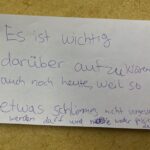 Es ist wichtig
darüber aufzuklären
auch noch heute, weil so
etwas schlimmes nicht vergessen
werden darf und nie wieder